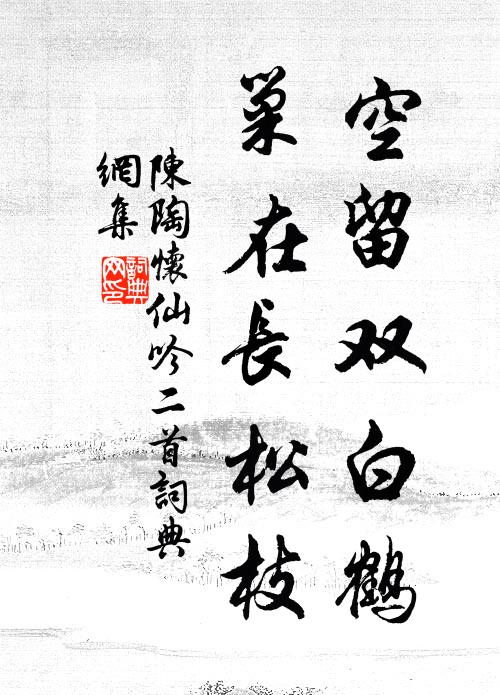 空留双白鶴
巢在長松枝
陳陶懷仙吟二首詞典
網集
詞典網印